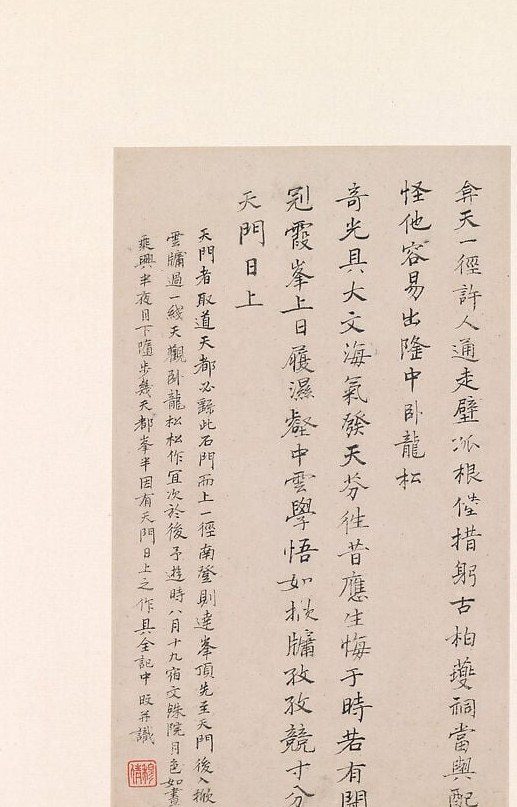 弇天一徑許人通走壁派根倦措躬古柏夔祠當與配
怪他容易出隆中卧龍松
奇光具大文海氣發天芬往昔應生悔于時若有聞
冠霞峯上日履濕壑中雲學悟如掀牖孜孜競寸分
天門日上
天門者取道天都必繇此石門而上一徑南登則達峯頂先至天門後入撇
雲牖過一綫天觀卧龍松松作宜次於後予遊時八月十九宿文殊院月色如晝
乘興半夜月下隨步幾天都峯半因有天門日上之作具全記中旼并識
穆倩